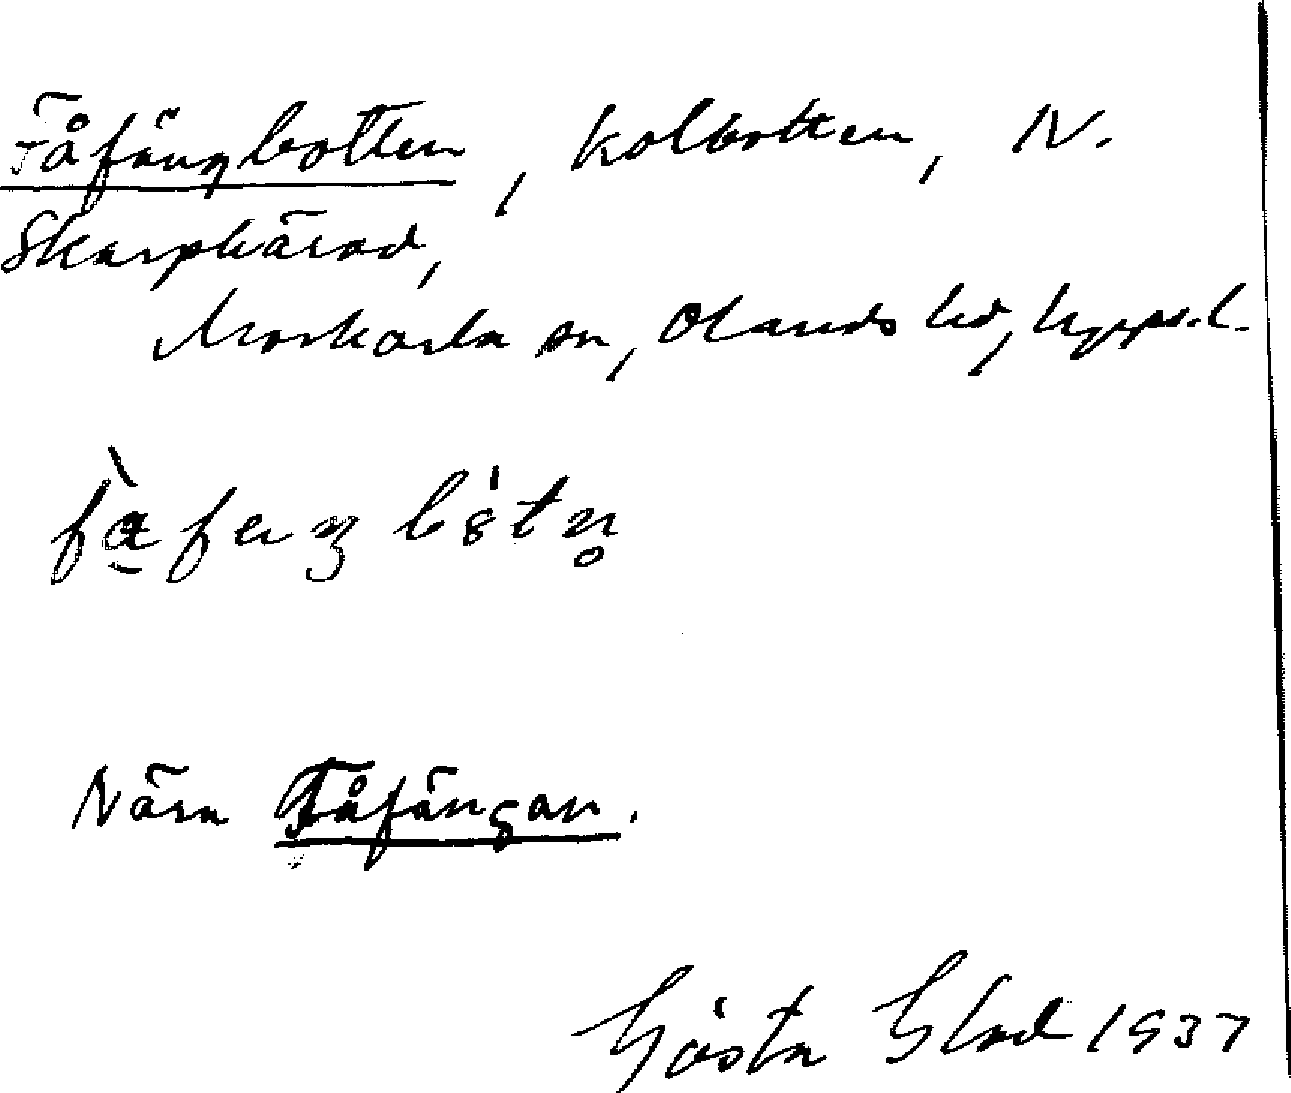 Fåfängbotten, kolbotten, N.
Skarpbärad,
Morkarla sn, Olands hd, Upps. l.
Nära Fåfängan.
Gösta Blad 1937